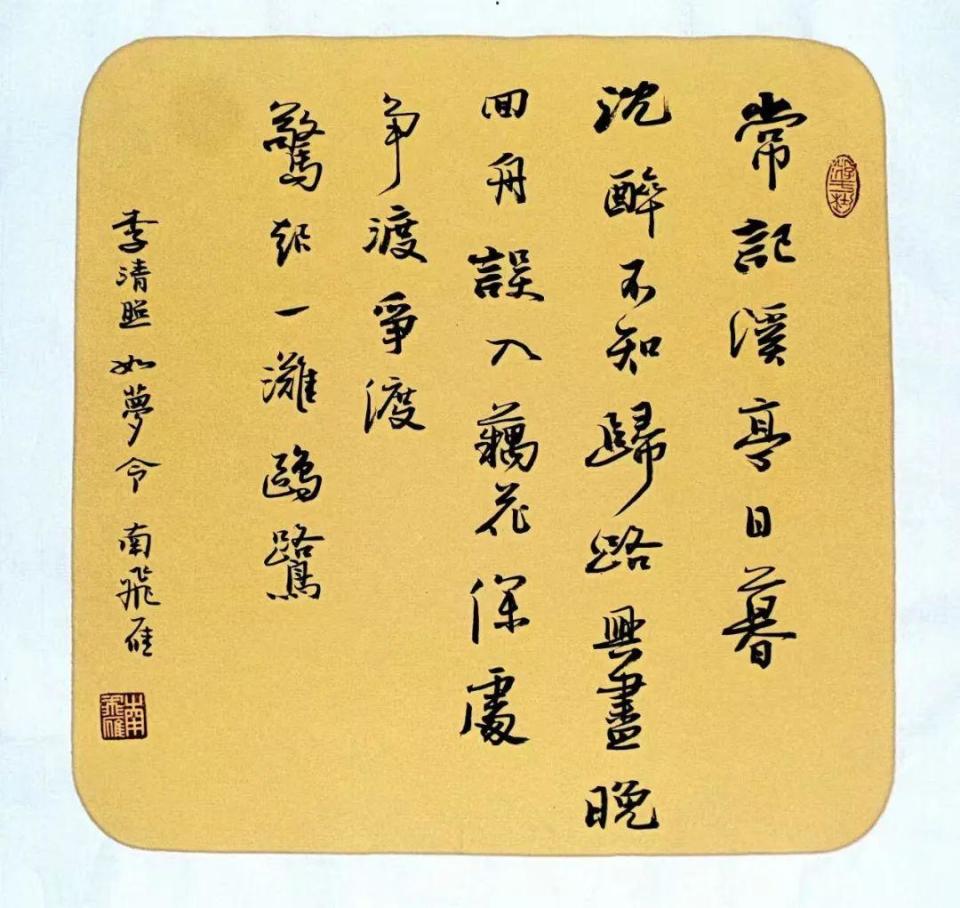 常記溪亭日暮
沈醉不知歸路興盡晚
回舟誤入藕花深處
争渡爭渡
驚起一灘鷗鷺
李清照如夢令南飛雁
南飛雁